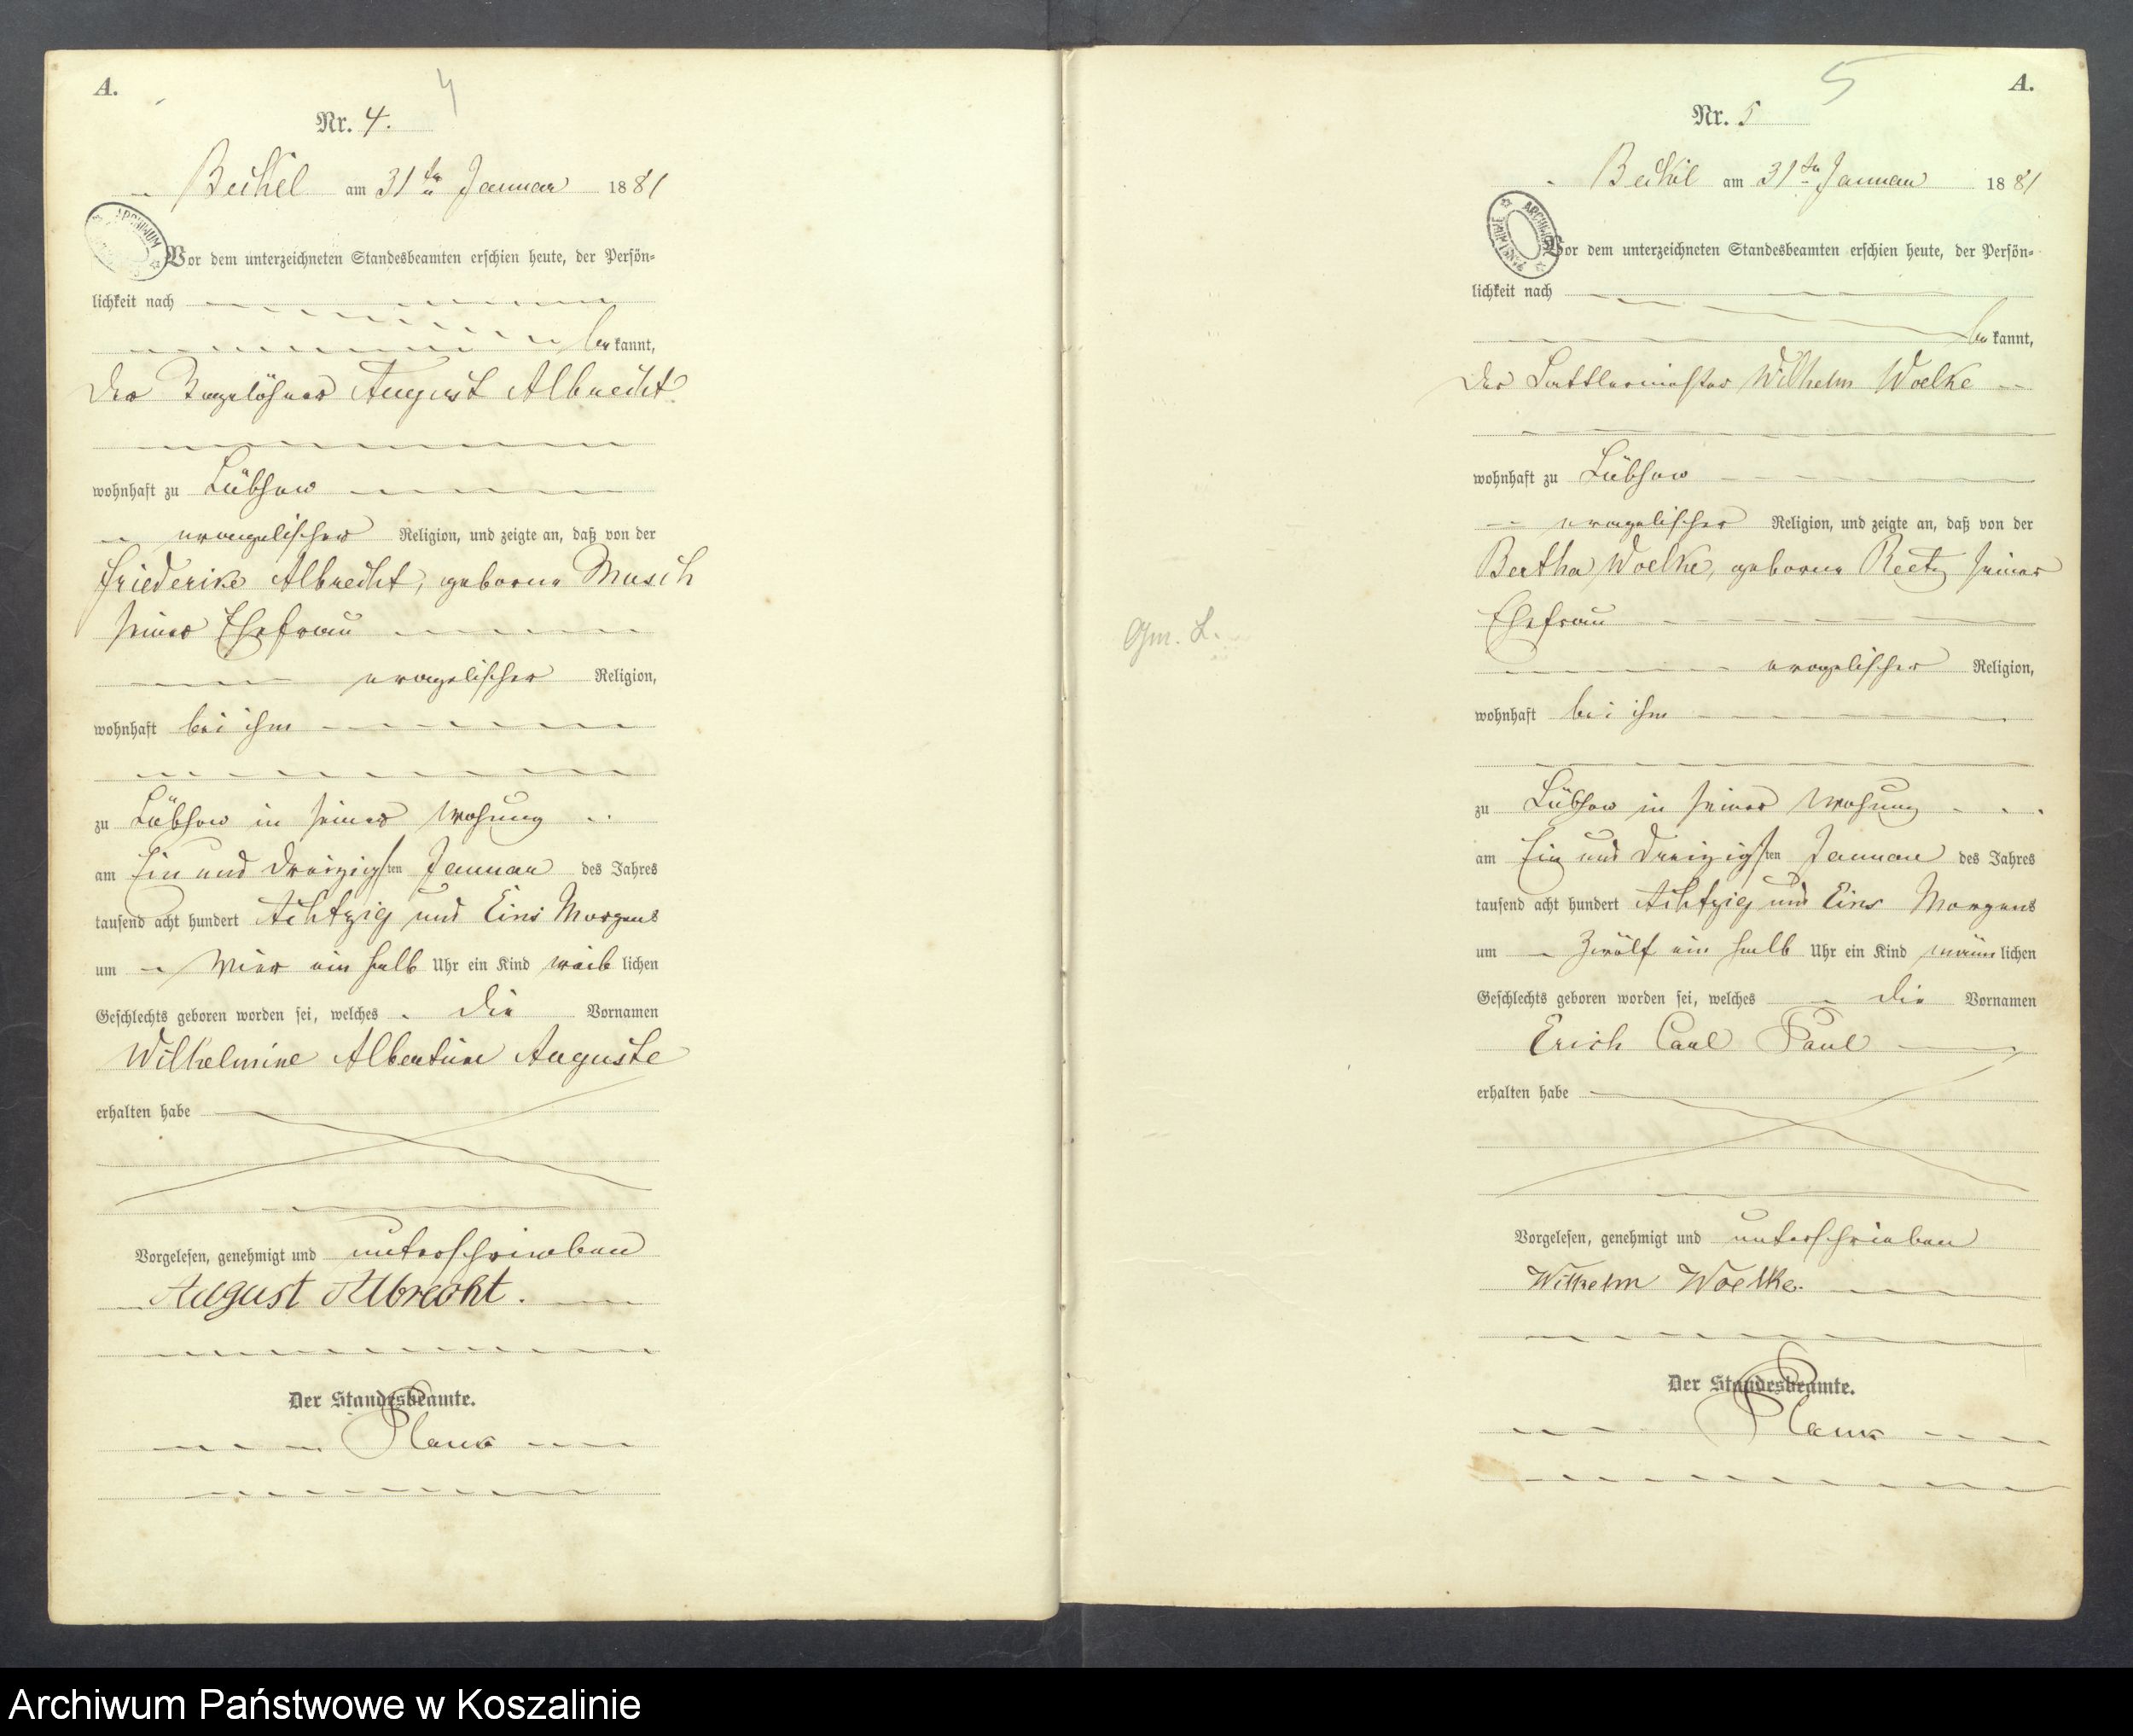 A.
4
Nr. 4.
Beckel am 31ten Januar 1881
ARCHIWUM
Vor dem unterzeichneten Standesbeamten erschien heute, der Persön-
lichkeit nach
bekannt,
Der Tagelöhner August Albrecht
wohnhaft zu Lübsow
evangelischer Religion, und zeigte an, daß von der
Friederike Albrecht, geborne Musch
seiner Ehefrau
evangelischer Religion,
wohnhaft bei ihm
zu Lübsow in seiner Wohnung
am Ein und Dreizigsten Januar des Jahres
tausend acht hundert Achtzig und Eins Morgens
um Vier ein halb Uhr ein Kind weiblichen
Geschlechts geboren worden sei, welches die Vornamen
Wilhelmine Albertine Auguste
erhalten habe
Vorgelesen, genehmigt und unterschrieben
August Albrecht.
Der Standesbeamte.
A.
5
Nr. 5
Beckel am 31ten Januar 1881
ARCHIWUM
Vor dem unterzeichneten Standesbeamten erschien heute, der Persön-
lichkeit nach
bekannt,
Der Sattlermeister Wilhelm Woelke
wohnhaft zu Lübsow
evangelischer Religion, und zeigte an, daß von der
Bertha Woelke, geborne Reetz seiner
Ehefrau
evangelischer Religion,
wohnhaft bei ihm
zu Lübsow in seiner Wohnung
am Ein und Dreizigsten Januar des Jahres
tausend acht hundert Achtzig und Eins Morgens
um Zwölf ein halb Uhr ein Kind männlichen
Geschlechts geboren worden sei, welches die Vornamen
Erich Carl Paul
erhalten habe
Vorgelesen, genehmigt und unterschrieben
Wilhelm Woelke.
Der Standesbeamte.
Archiwum Państwowe w Koszalinie